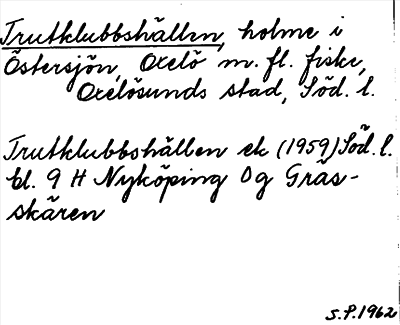 Trutklubbshällen, holme i
Östersjön, Oxelö m. fl. fiske,
Oxelösunds stad, Söd. l.
Trutklubbshällen ek (1959) Söd. l.
bl. 9 H Nyköping Og Gräs-
skären
S.P. 1962